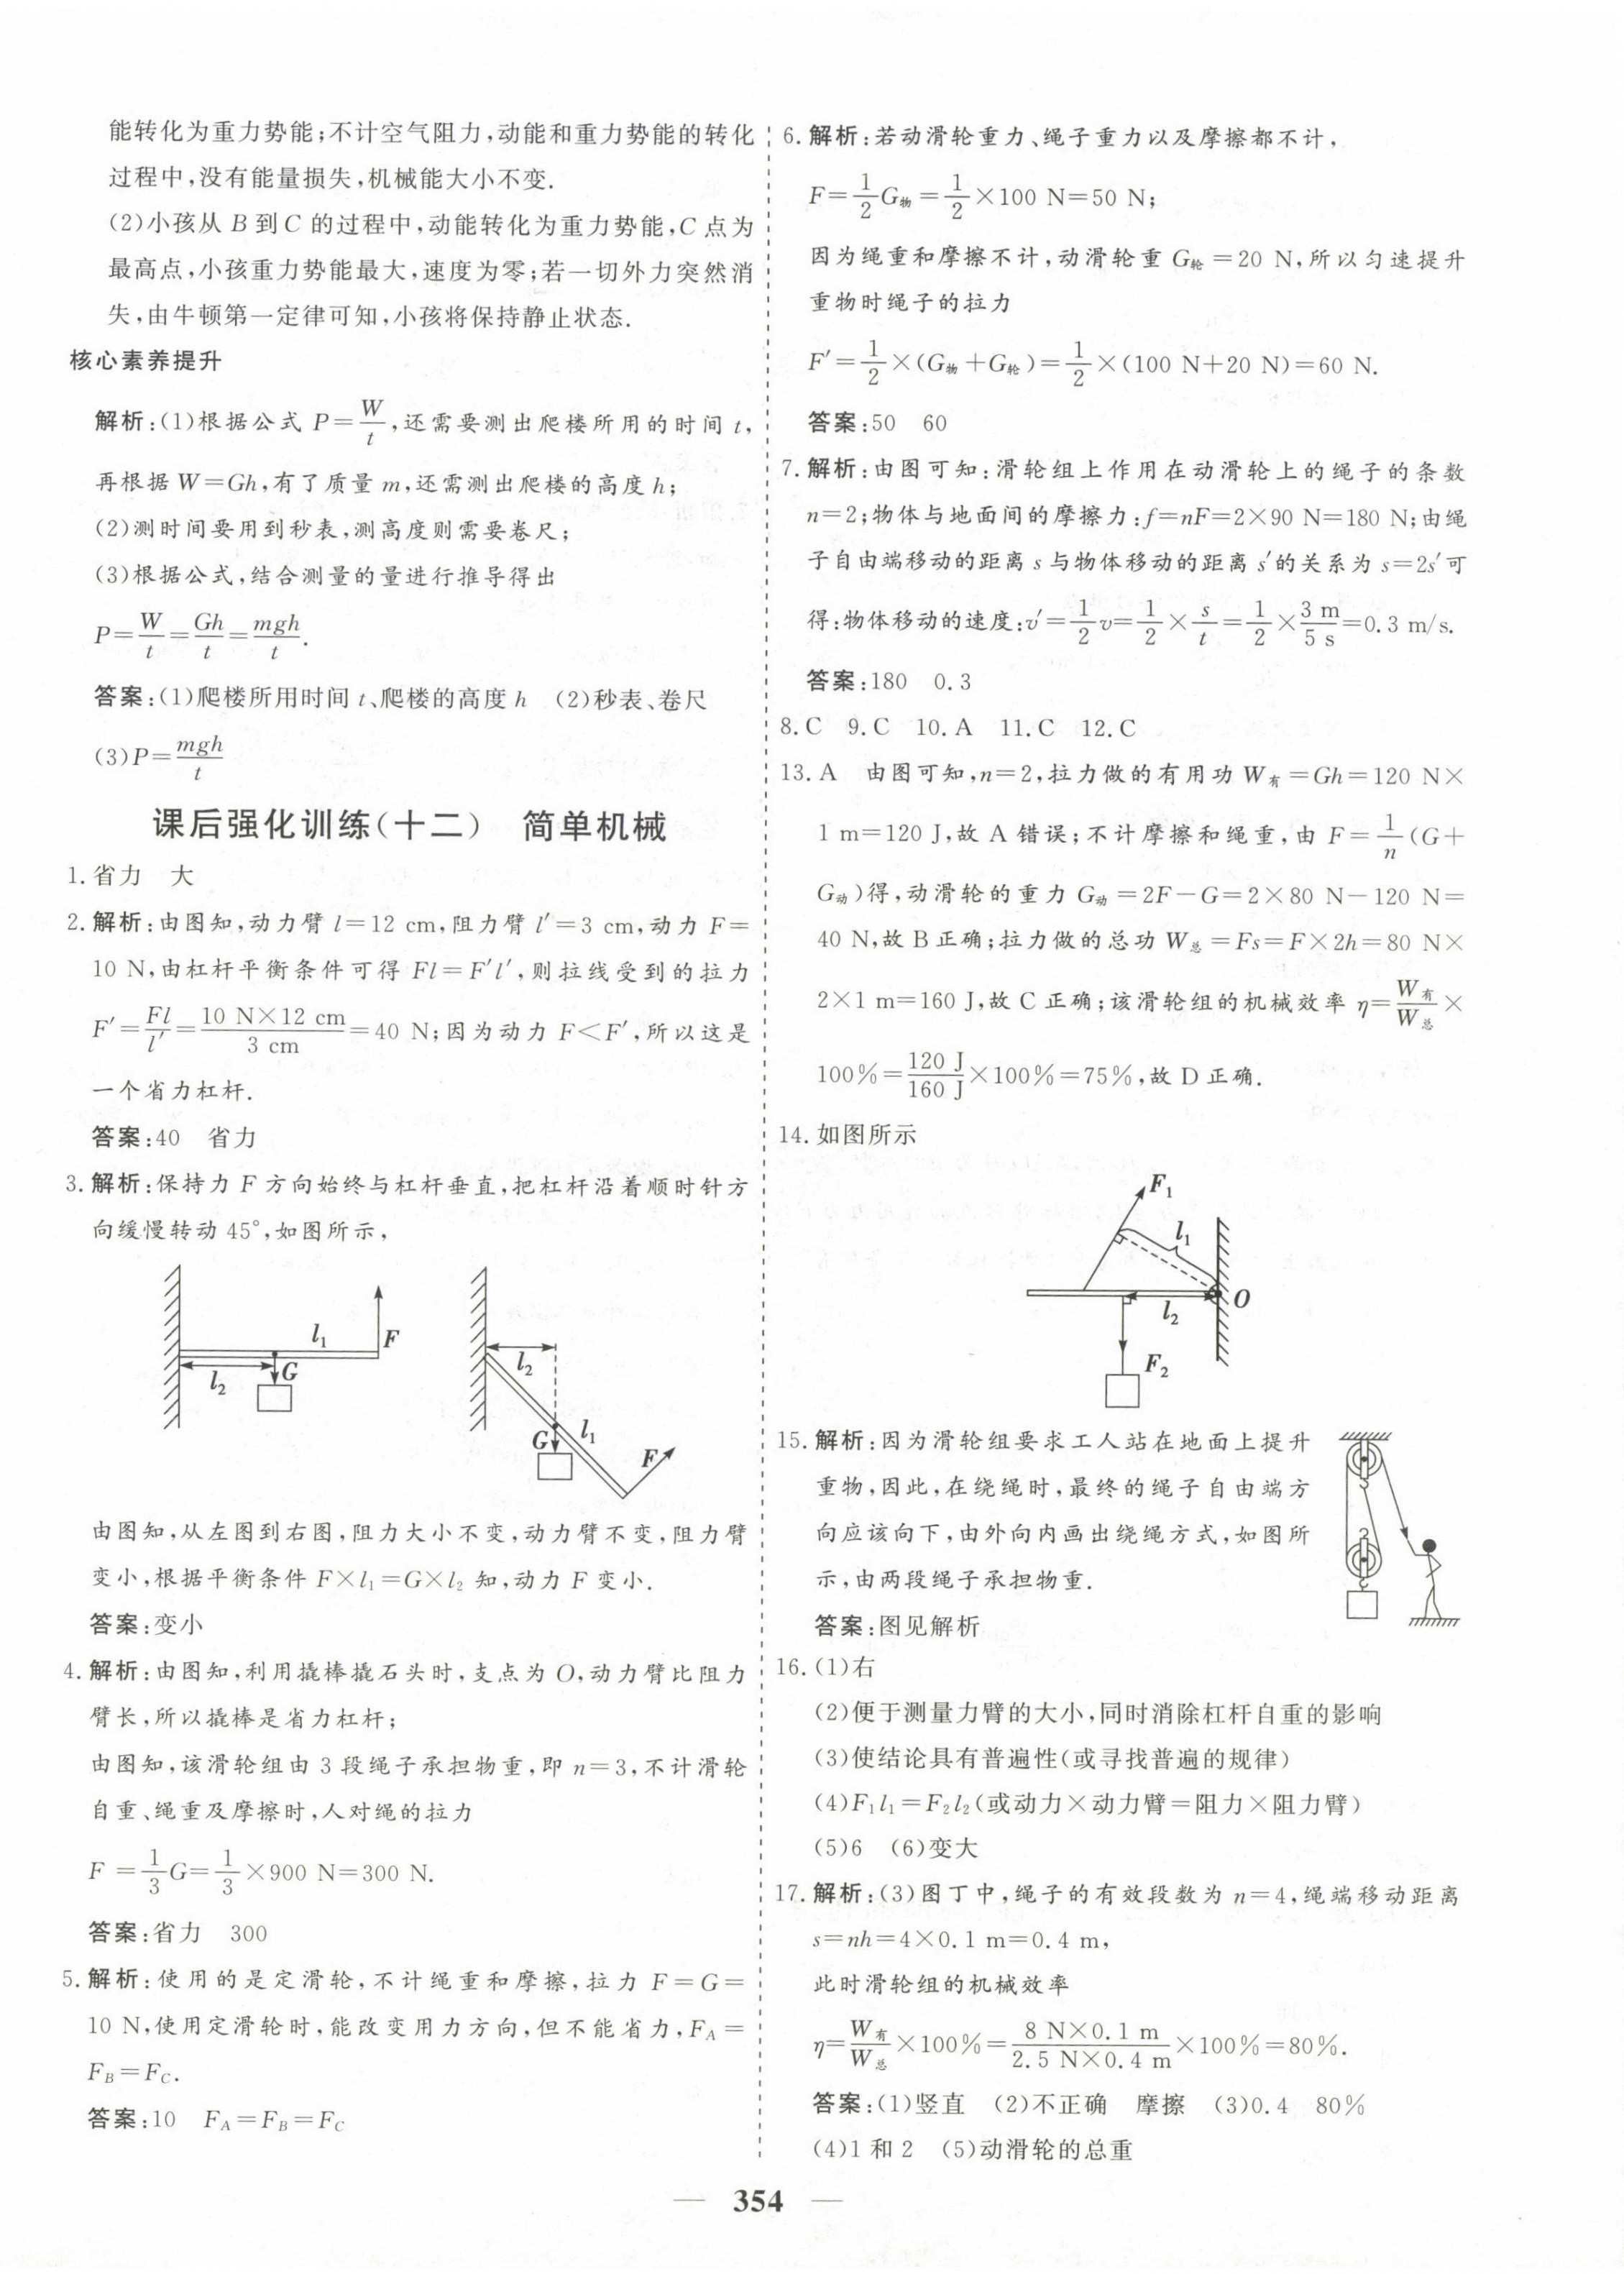 能转化为重力势能;不计空气阻力,动能和重力势能的转化
过程中,没有能量损失,机械能大小不变.
(2)小孩从 B 到 C 的过程中,动能转化为重力势能,C 点为
最高点,小孩重力势能最大,速度为零;若一切外力突然消
失,由牛顿第一定律可知,小孩将保持静止状态.
核心素养提升
解析:(1)根据公式 P=W/t,还需要测出爬楼所用的时间 t,
再根据 W=Gh,有了质量 m,还需测出爬楼的高度 h;
(2)测时间要用到秒表,测高度则需要卷尺;
(3)根据公式,结合测量的量进行推导得出
P=W/t=Gh/t=mgh/t.
答案:(1)爬楼所用时间 t、爬楼的高度 h (2)秒表、卷尺
(3)P=mgh/t
课后强化训练(十二) 简单机械
1.省力 大
2.解析:由图知,动力臂 l=12 cm,阻力臂 l′=3 cm,动力 F=
10 N,由杠杆平衡条件可得 Fl=F′l′,则拉线受到的拉力
F′=Fl/l′=10 N×12 cm/3 cm=40 N;因为动力 F<F′,所以这是
一个省力杠杆.
答案:40 省力
3.解析:保持力 F 方向始终与杠杆垂直,把杠杆沿着顺时针方
向缓慢转动 45°,如图所示,
l₁ F
l₂ G
l₂
G l₁
F
由图知,从左图到右图,阻力大小不变,动力臂不变,阻力臂
变小,根据平衡条件 F×l₁=G×l₂ 知,动力 F 变小.
答案:变小
4.解析:由图知,利用撬棒撬石头时,支点为 O,动力臂比阻力
臂长,所以撬棒是省力杠杆;
由图知,该滑轮组由 3 段绳子承担物重,即 n=3,不计滑轮
自重、绳重及摩擦时,人对绳的拉力
F=1/3G=1/3×900 N=300 N.
答案:省力 300
5.解析:使用的是定滑轮,不计绳重和摩擦,拉力 F=G=
10 N,使用定滑轮时,能改变用力方向,但不能省力,F_A=
F_B=F_C.
答案:10 F_A=F_B=F_C
6.解析:若动滑轮重力、绳子重力以及摩擦都不计,
F=1/2G物=1/2×100 N=50 N;
因为绳重和摩擦不计,动滑轮重 G轮=20 N,所以匀速提升
重物时绳子的拉力
F′=1/2×(G物+G轮)=1/2×(100 N+20 N)=60 N.
答案:50 60
7.解析:由图可知:滑轮组上作用在动滑轮上的绳子的条数
n=2;物体与地面间的摩擦力:f=nF=2×90 N=180 N;由绳
子自由端移动的距离 s 与物体移动的距离 s′的关系为 s=2s′可
得:物体移动的速度:v′=1/2v=1/2×s/t=1/2×3 m/5 s=0.3 m/s.
答案:180 0.3
8.C 9.C 10.A 11.C 12.C
13.A 由图可知,n=2,拉力做的有用功 W有=Gh=120 N×
1 m=120 J,故 A 错误;不计摩擦和绳重,由 F=1/n(G+
G动)得,动滑轮的重力 G动=2F-G=2×80 N-120 N=
40 N,故 B 正确;拉力做的总功 W总=Fs=F×2h=80 N×
2×1 m=160 J,故 C 正确;该滑轮组的机械效率 η=W有/W总×
100%=120 J/160 J×100%=75%,故 D 正确.
14.如图所示
F₁
l₁
O
l₂
F₂
15.解析:因为滑轮组要求工人站在地面上提升
重物,因此,在绕绳时,最终的绳子自由端方
向应该向下,由外向内画出绕绳方式,如图所
示,由两段绳子承担物重.
答案:图见解析
16.(1)右
(2)便于测量力臂的大小,同时消除杠杆自重的影响
(3)使结论具有普遍性(或寻找普遍的规律)
(4)F₁l₁=F₂l₂(或动力×动力臂=阻力×阻力臂)
(5)6 (6)变大
17.解析:(3)图丁中,绳子的有效段数为 n=4,绳端移动距离
s=nh=4×0.1 m=0.4 m,
此时滑轮组的机械效率
η=W有/W总×100%=8 N×0.1 m/2.5 N×0.4 m×100%=80%.
答案:(1)竖直 (2)不正确 摩擦 (3)0.4 80%
(4)1 和 2 (5)动滑轮的总重
— 354 —